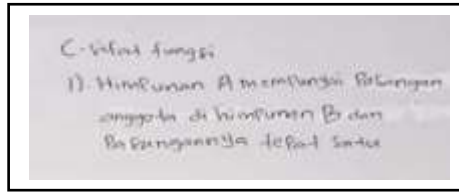 C. Sifat fungsi
1). Himpunan A mempunyai Pasangan
anggota di himpunan B dan
Pasangannya tepat satu